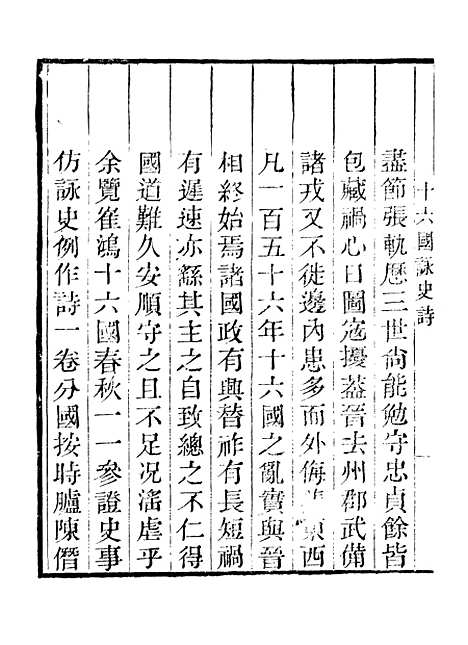 十六國詠史詩
盡節張軌歷三世尚能勉守忠貞餘皆
包藏禍心日圖寇擾蓋晉去州郡武備
諸戎又不徙邊內患多而外侮東西
凡一百五十六年十六國之亂實與晉
相終始焉諸國政有興替祚有長短禍
有遲速亦繇其主之自致總之不仁得
國道難久安順守之且不足況淫虐乎
余覽崔鴻十六國春秋一一參證史事
仿詠史例作詩一卷分國按時臚陳僭